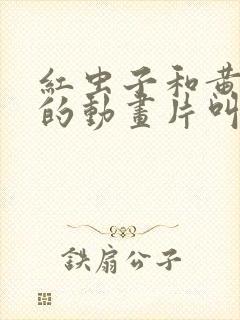 紅虫子和黄
的動畫片叫
鉄扇公子